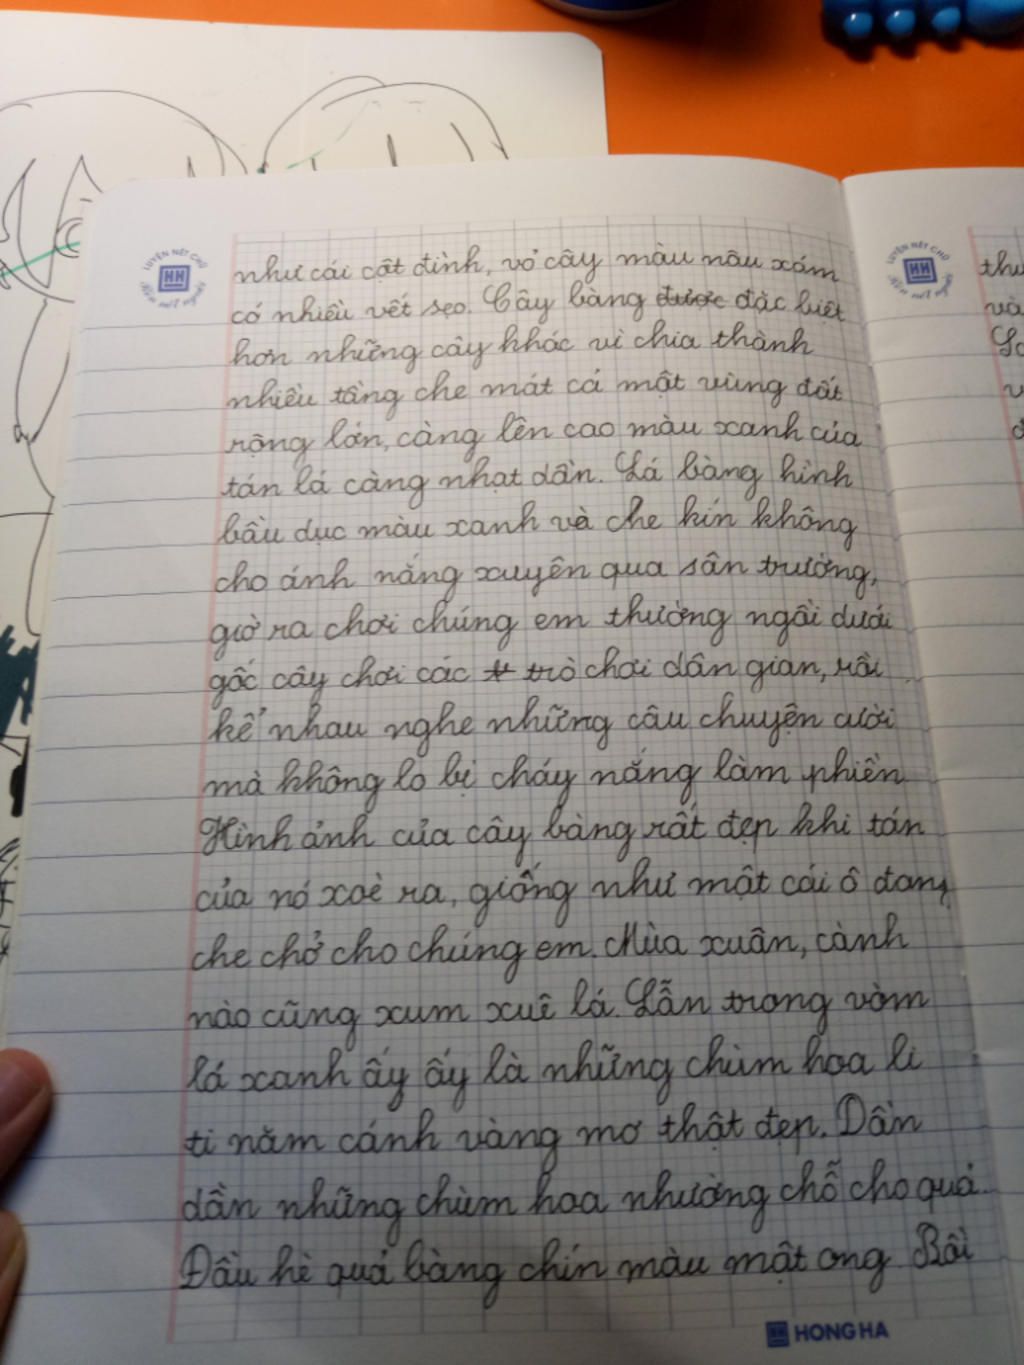 LUYỆN NÉT CHỮ
HH
Rèn nết người
như cái cột đình, vỏ cây màu nâu xám
có nhiều vết sẹo. Cây bàng được đặc biệt
hơn những cây khác vì chia thành
nhiều tầng che mát cả một vùng đất
rộng lớn, càng lên cao màu xanh của
tán lá càng nhạt dần. Lá bàng hình
bầu dục màu xanh và che kín không
cho ánh nắng xuyên qua sân trường,
giờ ra chơi chúng em thường ngồi dưới
gốc cây chơi các tr trò chơi dân gian, rồi
kể nhau nghe những câu chuyện cười
mà không lo bị cháy nắng làm phiền
Hình ảnh của cây bàng rất đẹp khi tán
của nó xoè ra, giống như một cái ô đang
che chở cho chúng em. Mùa xuân, cành
nào cũng xum xuê lá. Lẫn trong vòm
lá xanh ấy ấy là những chùm hoa li
ti năm cánh vàng mơ thật đẹp. Dần
dần những chùm hoa nhường chỗ cho quả
Đầu hè quả bàng chín màu mật ong. Rồi
HH HONG HA
LUYỆN NÉT CHỮ
HH
Rèn nết người
và